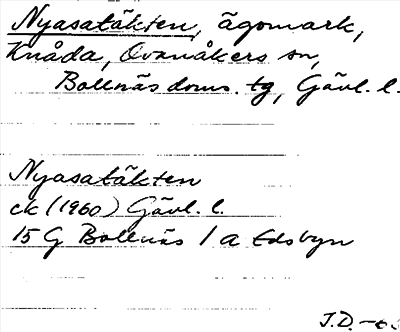 Nyasatäkten, ägomark,
Knåda, Ovanåkers sn,
Bollnäs doms. tg, Gävl. l.
Nyasatäkten
ek (1960) Gävl. l.
15 G Bollnäs 1 a Edsbyn
J.D. -